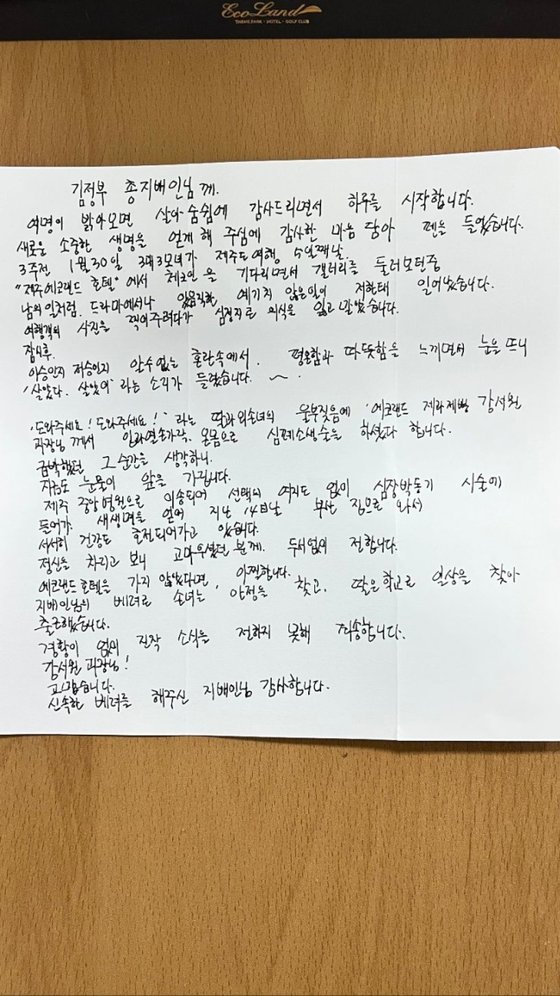 EcoLand
THEME PARK · HOTEL · GOLF CLUB
김정부 총지배인님께.
여명이 밝아오면 살아 숨쉼에 감사드리면서 하루를 시작합니다.
새로운 소중한 생명을 얻게 해 주심에 감사한 마음 담아 펜을 들었습니다.
3주전 1월 30일 3대 3모녀가 제주도 여행, 수일째날
"제주에코랜드 호텔"에서 체크인을 기다리면서 갤러리를 둘러보던중
남의 일처럼. 드라마에서나 있음직한 예기치 않은일이 저한테 일어났습니다.
여행객의 사진을 찍어주려다가 심정지로 의식을 잃고 말았습니다.
잠시후.
이승인지 저승인지 알수없는 혼란속에서. 평온함과 따뜻함을 느끼면서 눈을 뜨니
'살았다. 살았어' 라는 소리가 들렸습니다. ~.
'도와주세요! 도와주세요!' 라는 딸과 외손녀의 울부짖음에 '에코랜드 제라제빵 강서원
과장님께서 인라연손가락. 온몸으로 심폐소생술을 하셨다 합니다.
급박했던 그 순간을 생각하니.
지금도 눈물이 앞을 가립니다.
제주 중앙병원으로 이송되어 선택의 여지도 없이 심장박동기 시술에
들어가. 새생명을 얻어 지난 14일날 부산 집으로 와서
서서히 건강도 호전되어가고 있습니다.
정신을 차리고 보니 고마우셨던 분께. 두서없이 전합니다.
에코랜드 호텔을 가지 않았다면, 아찔합니다.
지배인님의 베려로 손녀는 안정을 찾고, 딸은 학교로 일상을 찾아
출근했습니다.
경황이 없어 진작 소식을 전하지 못해 죄송합니다.
강서원 과장님!
고맙습니다.
신속한 베려를 해주신 지배인님 감사합니다.